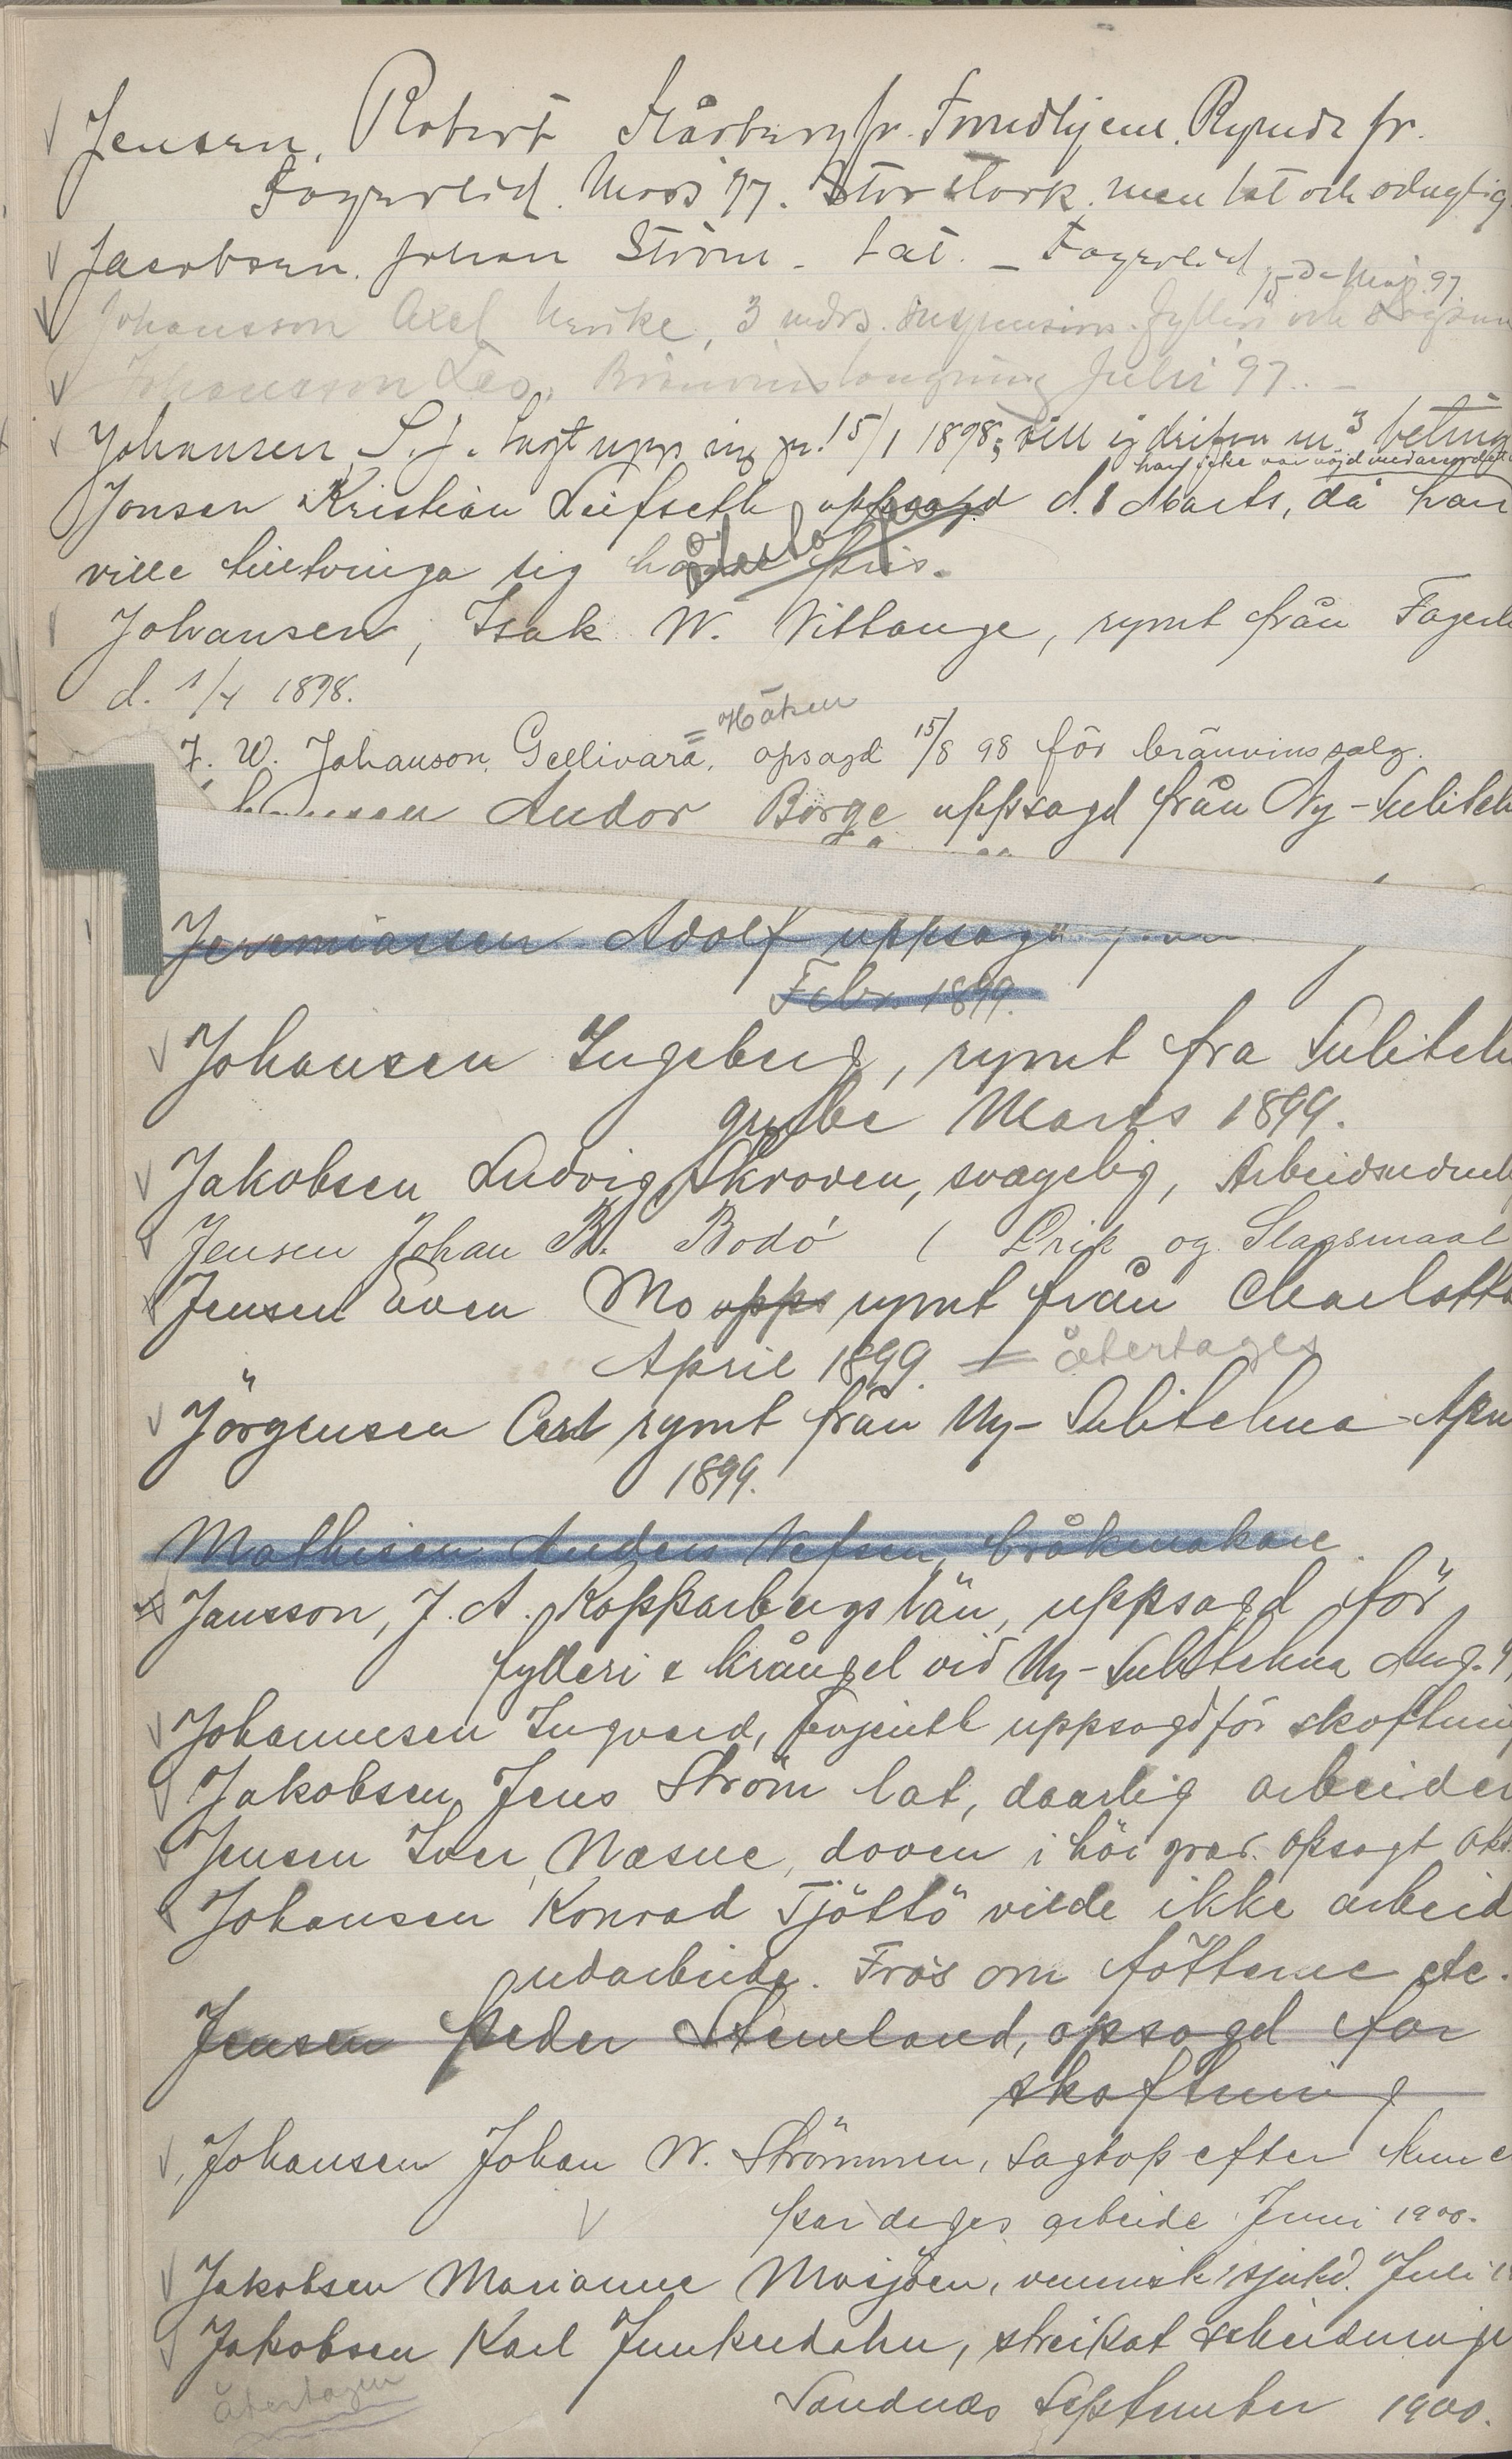 Jensen, Robert Skårberg fr. Trondhjem. Rymde fr.
Fagerlid. Mars 97. Stor stark men lat och oduglig
Jacobsen. Johan Ström - Lat. - Fagerlid
15de Maj. 97
Johansson Axel 3 mdrs. suspension. Fylleri och
Johansson Leo, Brännvinslangning Juli 97. -
Johansen S. J. Sagt upp sig pr. 15/1 1898; vill ej m3 beting
han icke var nöjd med
Jonsen Kristian Leifseth uppsagd d. 8 Marts, då han
ville tilltvinga sig högre pris.
återtages
Johansen, Isak W. Vittange, rymt från Fagerli
d. 1/4 1898.
= Håken
J. W. Johanson, Gellivara, opsagd 15/8 98 för bränvinssalg.
hansen Andor Börge uppsagd från Ny-Sulitel
Jeremiassen Adolf uppsagd
Febr. 1899.
Johansen Ingeberg, rymt fra Sulitel
grube Marts 1899.
Jakobsen Ludvig Skroven, svagelig,
Jensen Johan B. Bodö ( Drik og Slagsmaal
Jensen Even Mo opps rymt från Charlotta
April 1899. = återtages
Jörgensen Carl rymt från Ny-Sulitelma Apr
1899.
Mathisen Anders Vefsen, bråkmakare.
Jansson, J. A. Kopparbergs län, uppsagd för
fylleri & krångel vid Ny-Sulitelma Aug. 9
Johannesen Ingvard, uppsagd för skoftning
Jakobsen, Jens Ström lat, daarlig arbeider
Jensen Iver, Næsne, doven i höi grad. opsagt Okt.
Johansen Konrad Tjöttö vilde ikke arbeid
udarbeide. Frös om föttene etc.
Jensen Peder Stemland, opsagd for
skoftning
Johansen Johan W. Strömmen, sagt op efter kun e
par dages arbeide Juni 1900.
Jakobsen Marianne Mosjöen, venerisk sjukd. Juli 1
Jakobsen Karl Junkerdahn, streikat
Sandnæs September 1900.
återtagen